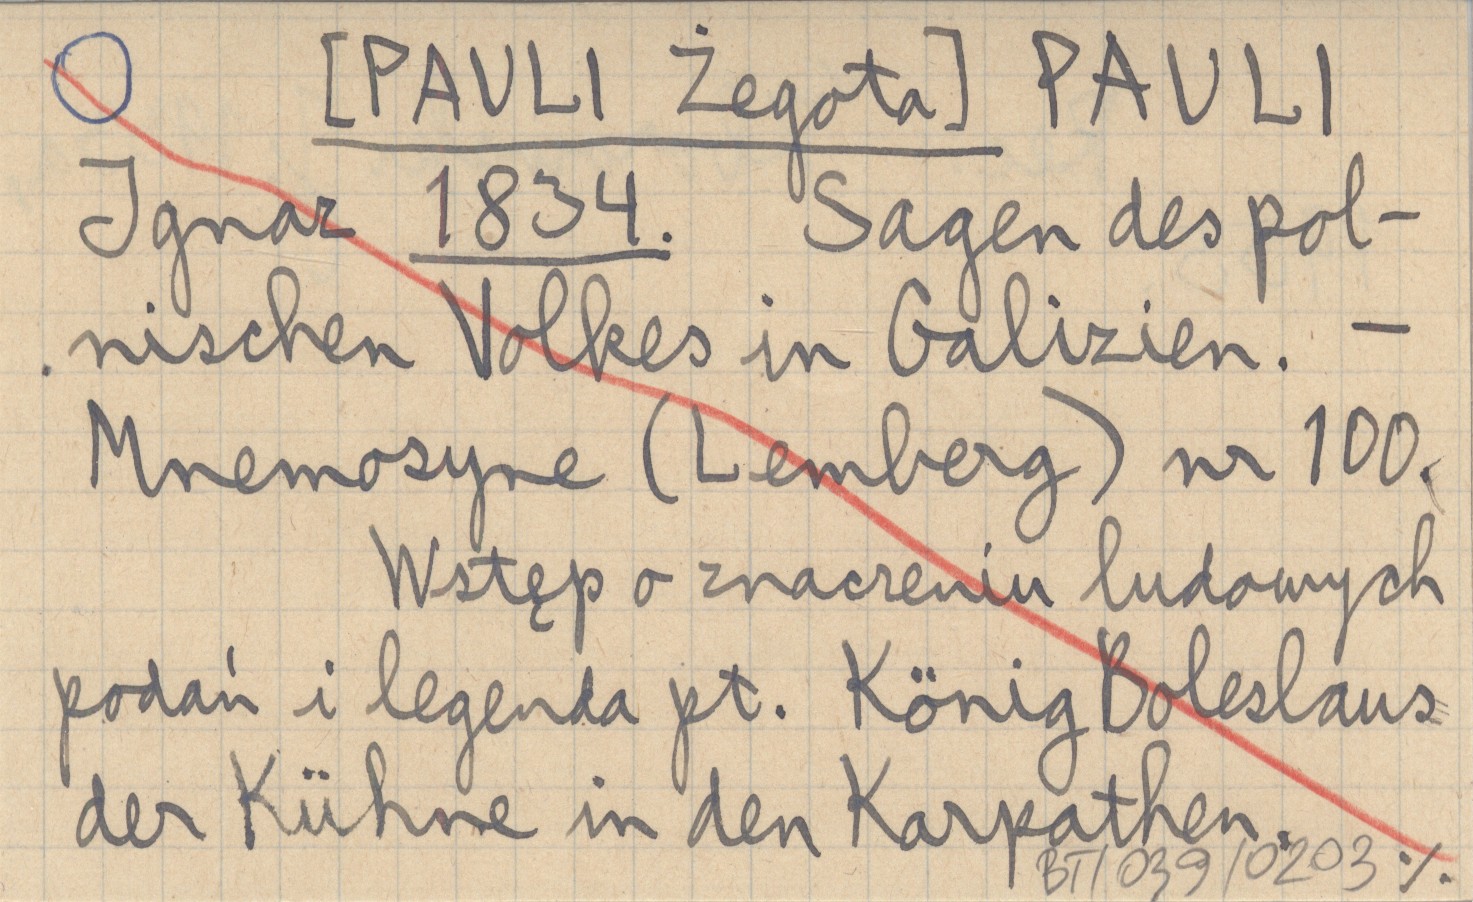 [PAULI Żegota] PAULI
Ignaz 1834. Sagen des pol-
nischen Volkes in Galizien. —
Mnemosyne (Lemberg) nr 100.
Wstęp o znaczeniu ludowych
podań i legenda pt. König Boleslaus
der Kühne in den Karpathen.
BT/039/0203 ·/.